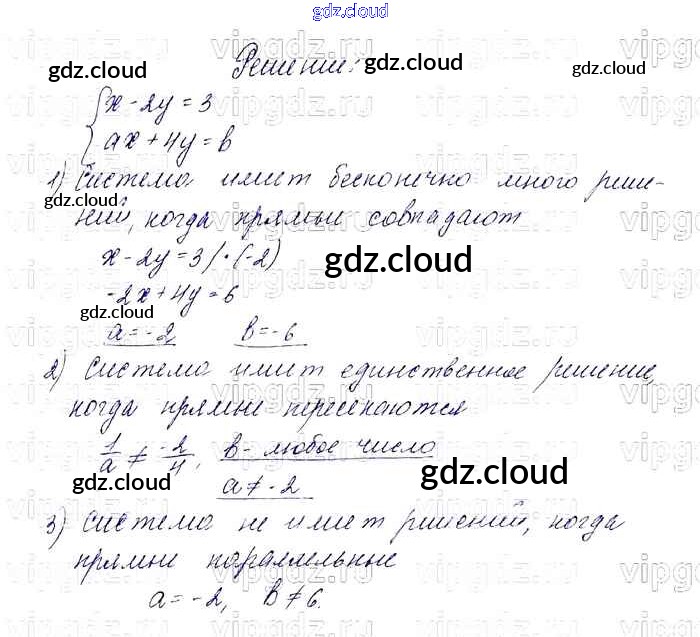 gdz.cloud
Решение:
{ x - 2y = 3
ax + 4y = b
1) Система имеет бесконечно много реше-
ний, когда прямые совпадают
x - 2y = 3 / · (-2)
-2x + 4y = 6
a = -2, b = -6
2) Система имеет единственное решение,
когда прямые пересекаются
1/a ≠ -2/4, b - любое число
a ≠ -2
3) Система не имеет решений, когда
прямые параллельные
a = -2, b ≠ 6.
gdz.cloud
gdz.cloud
gdz.cloud
gdz.cloud
gdz.cloud
gdz.cloud
gdz.cloud
gdz.cloud
gdz.cloud
vipgdz.ru